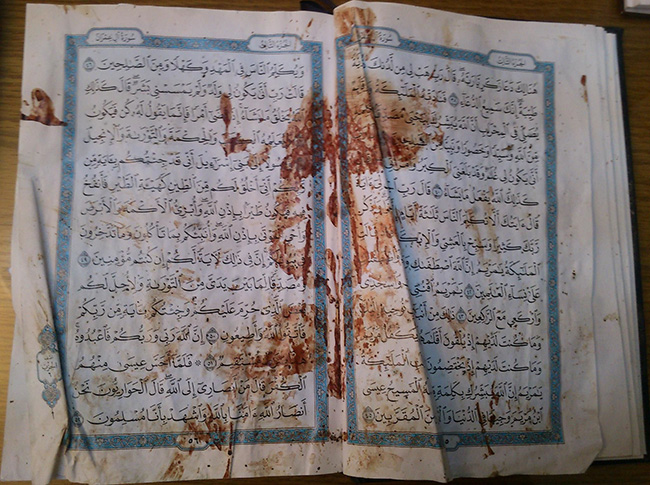 سورة آل عمران
الجزء الثالث
هُنَالِكَ دَعَا زَكَرِيَّا رَبَّهُ قَالَ رَبِّ هَبْ لِي مِن لَّدُنكَ
طَيِّبَةً إِنَّكَ سَمِيعُ الدُّعَاءِ ٣٨ فَنَادَتْهُ الْمَلَٰئِكَةُ
يُصَلِّي فِي الْمِحْرَابِ أَنَّ اللَّهَ يُبَشِّرُكَ بِيَحْيَىٰ مُصَدِّقًا
مِّنَ اللَّهِ وَسَيِّدًا وَحَصُورًا وَنَبِيًّا
أَنَّىٰ يَكُونُ لِي غُلَٰمٌ وَقَدْ بَلَغَنِيَ الْكِبَرُ
كَذَٰلِكَ اللَّهُ يَفْعَلُ مَا يَشَاءُ ٤٠ قَالَ رَبِّ ءَايَةً
قَالَ ءَايَتُكَ أَلَّا تُكَلِّمَ النَّاسَ ثَلَٰثَةَ أَيَّامٍ
رَّبَّكَ كَثِيرًا وَسَبِّحْ بِالْعَشِيِّ وَالْإِبْكَٰرِ
الْمَلَٰئِكَةُ يَٰمَرْيَمُ إِنَّ اللَّهَ اصْطَفَىٰكِ
عَلَىٰ نِسَاءِ الْعَٰلَمِينَ ٤٢ يَٰمَرْيَمُ اقْنُتِي وَاسْجُدِي
وَارْكَعِي مَعَ الرَّٰكِعِينَ ٤٣ ذَٰلِكَ مِنْ أَنبَاءِ نُوحِيهِ
وَمَا كُنتَ لَدَيْهِمْ إِذْ يُلْقُونَ أَقْلَٰمَهُمْ يَكْفُلُ مَرْيَمَ
وَمَا كُنتَ لَدَيْهِمْ إِذْ يَخْتَصِمُونَ الْمَلَٰئِكَةُ
يَٰمَرْيَمُ إِنَّ اللَّهَ يُبَشِّرُكِ بِكَلِمَةٍ مِّنْهُ الْمَسِيحُ عِيسَى
ابْنُ مَرْيَمَ وَجِيهًا فِي الدُّنْيَا وَالْءَاخِرَةِ وَمِنَ الْمُقَرَّبِينَ ٤٥
سورة آل عمران
الجزء الثالث
وَيُكَلِّمُ النَّاسَ فِي الْمَهْدِ وَكَهْلًا وَمِنَ الصَّٰلِحِينَ ٤٦
قَالَتْ رَبِّ أَنَّىٰ يَكُونُ لِي وَلَدٌ وَلَمْ يَمْسَسْنِي بَشَرٌ قَالَ كَذَٰلِكِ
يَخْلُقُ مَا يَشَاءُ إِذَا قَضَىٰ أَمْرًا فَإِنَّمَا يَقُولُ لَهُ كُن فَيَكُونُ
وَالْحِكْمَةَ وَالتَّوْرَىٰةَ وَالْإِنجِيلَ
إِسْرَٰءِيلَ أَنِّي قَدْ جِئْتُكُم بِـَٔايَةٍ مِّن
رَّبِّكُمْ أَنِّي أَخْلُقُ لَكُم مِّنَ الطِّينِ كَهَيْـَٔةِ الطَّيْرِ فَأَنفُخُ
فِيهِ فَيَكُونُ طَيْرًا بِإِذْنِ اللَّهِ وَأُبْرِئُ الْأَكْمَهَ وَالْأَبْرَصَ
وَأُحْيِ الْمَوْتَىٰ بِإِذْنِ اللَّهِ وَأُنَبِّئُكُم بِمَا تَأْكُلُونَ وَمَا تَدَّخِرُونَ
إِنَّ فِي ذَٰلِكَ لَءَايَةً لَّكُمْ إِن كُنتُم مُّؤْمِنِينَ ٤٩
وَمُصَدِّقًا لِّمَا بَيْنَ يَدَيَّ مِنَ التَّوْرَىٰةِ وَلِأُحِلَّ لَكُم
بَعْضَ الَّذِي حُرِّمَ عَلَيْكُمْ وَجِئْتُكُم بِـَٔايَةٍ مِّن رَّبِّكُمْ
فَاتَّقُوا اللَّهَ وَأَطِيعُونِ ٥٠ إِنَّ اللَّهَ رَبِّي وَرَبُّكُمْ فَاعْبُدُوهُ
مُّسْتَقِيمٌ ٥١ فَلَمَّا أَحَسَّ عِيسَىٰ مِنْهُمُ
الْكُفْرَ قَالَ مَنْ أَنصَارِي إِلَى اللَّهِ قَالَ الْحَوَارِيُّونَ نَحْنُ
أَنصَارُ اللَّهِ ءَامَنَّا بِاللَّهِ وَاشْهَدْ بِأَنَّا مُسْلِمُونَ ٥٢
٥٦